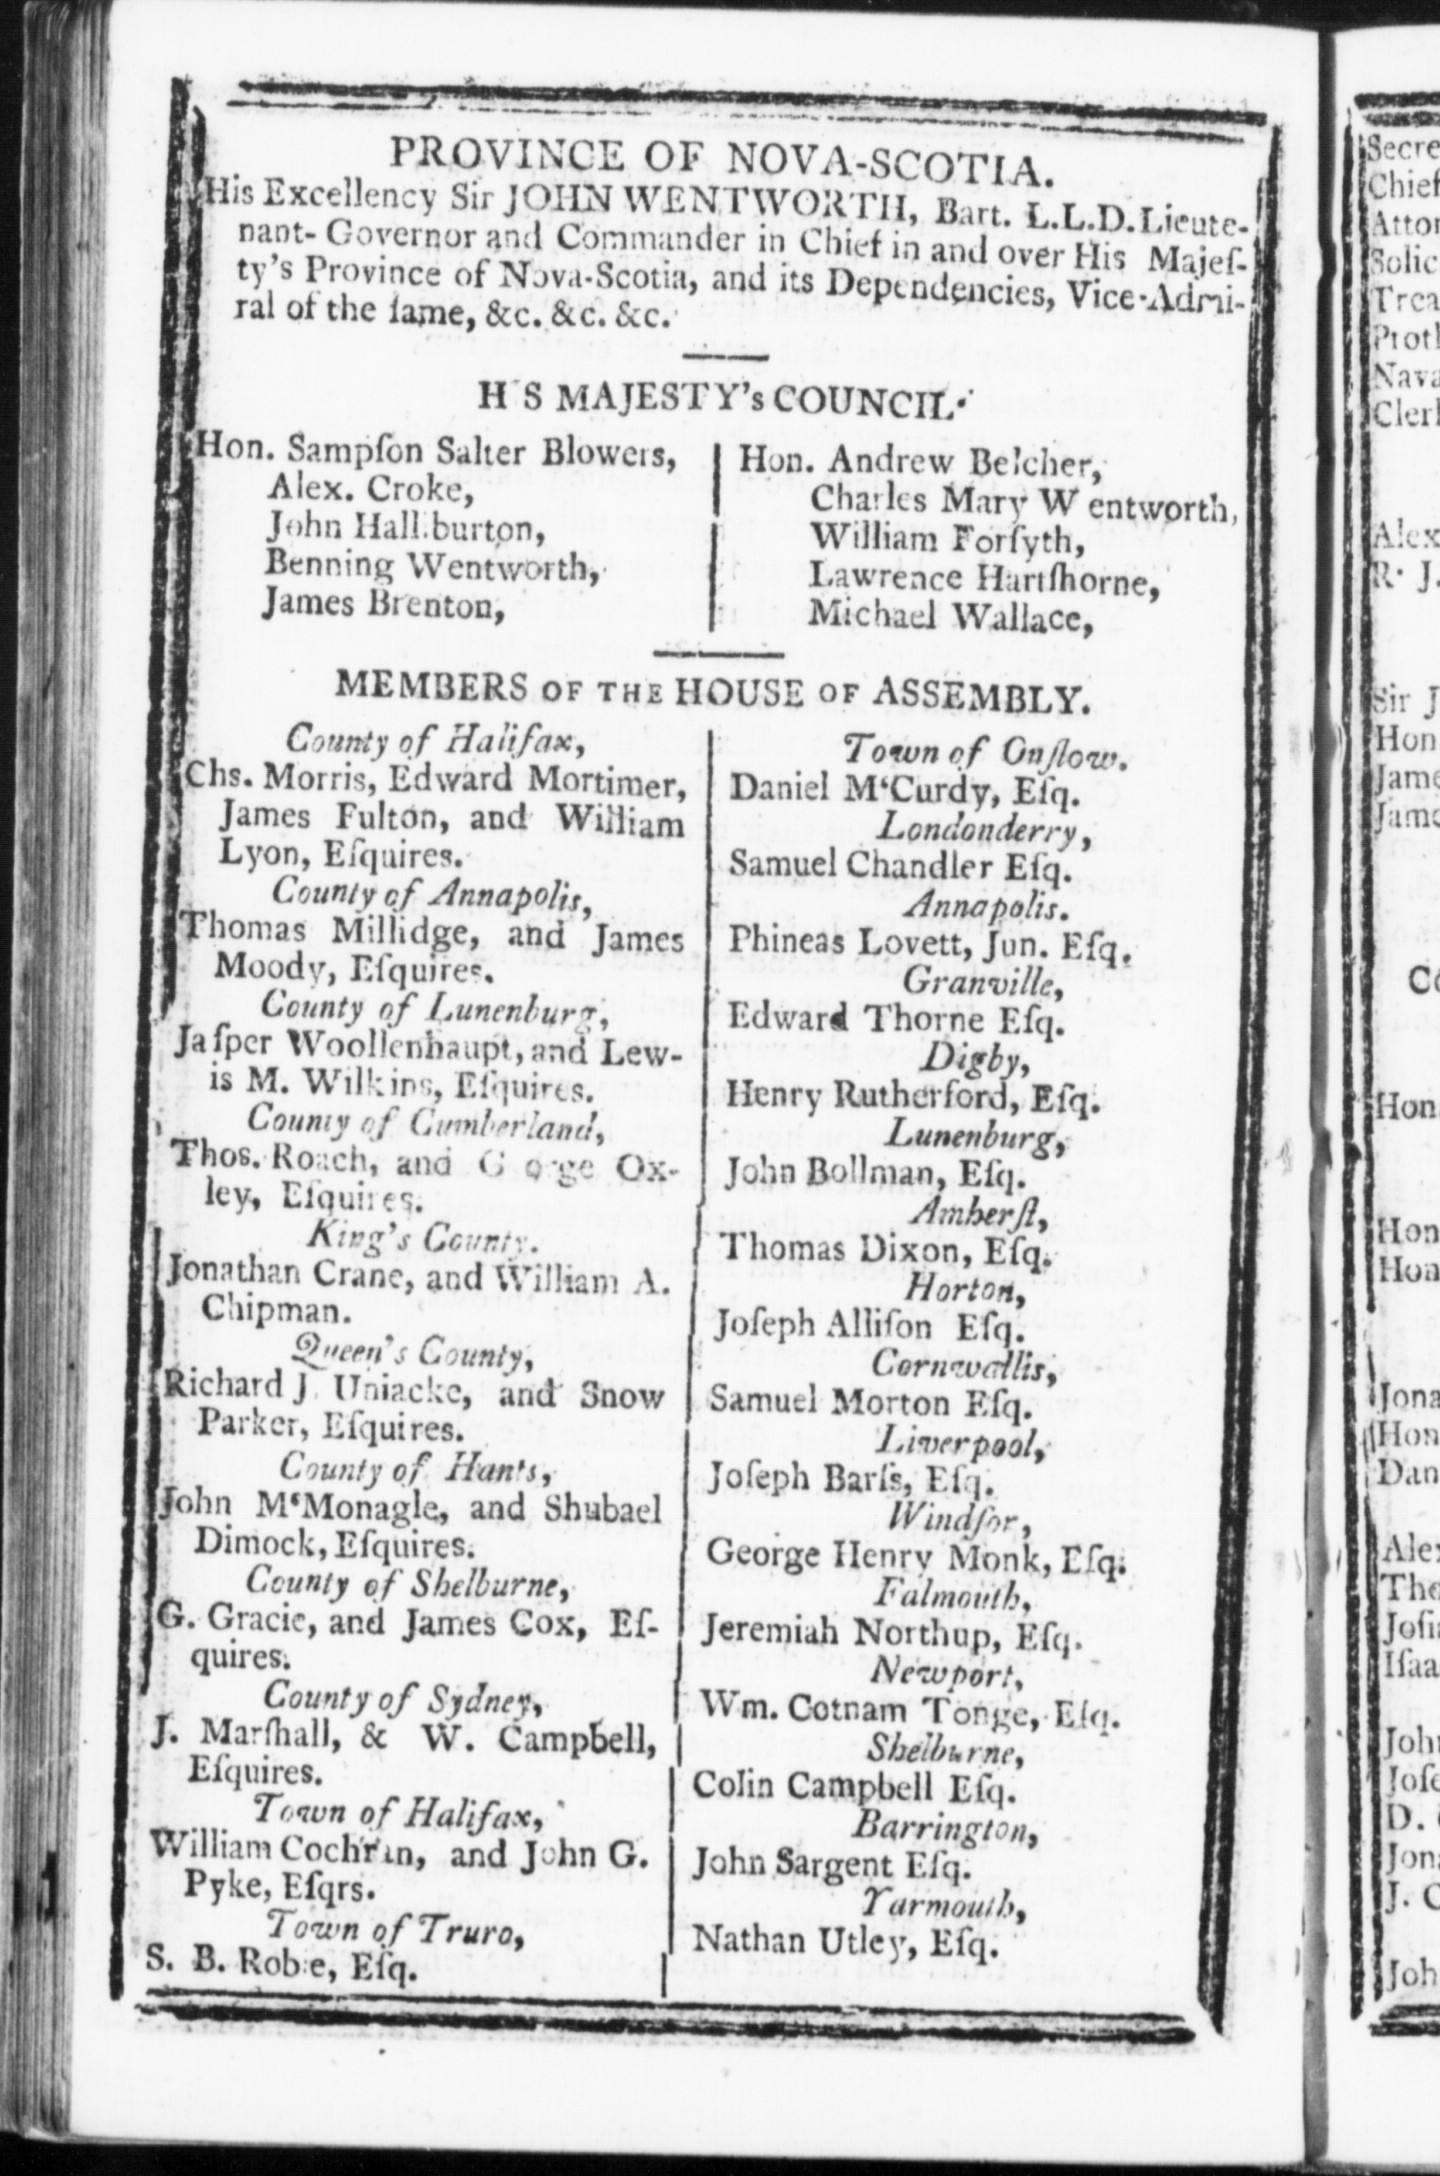 PROVINCE OF NOVA-SCOTIA.
His Excellency Sir JOHN WENTWORTH, Bart. L.L.D. Lieute-
nant- Governor and Commander in Chief in and over His Majeſ-
ty's Province of Nova-Scotia, and its Dependencies, Vice-Admi-
ral of the ſame, &c. &c. &c.
H S MAJESTY's COUNCIL.
Hon. Sampſon Salter Blowers,
Alex. Croke,
John Halliburton,
Benning Wentworth,
James Brenton,
Hon. Andrew Belcher,
Charles Mary Wentworth,
William Forſyth,
Lawrence Hartſhorne,
Michael Wallace,
MEMBERS OF THE HOUSE OF ASSEMBLY.
County of Halifax,
Chs. Morris, Edward Mortimer,
James Fulton, and William
Lyon, Eſquires.
County of Annapolis,
Thomas Millidge, and James
Moody, Eſquires.
County of Lunenburg,
Jaſper Woollenhaupt, and Lew-
is M. Wilkins, Eſquires.
County of Cumberland,
Thos. Roach, and G orge Ox-
ley, Eſquires.
King's County.
Jonathan Crane, and William A.
Chipman.
Queen's County,
Richard J. Uniacke, and Snow
Parker, Eſquires.
County of Hants,
John M‘Monagle, and Shubael
Dimock, Eſquires.
County of Shelburne,
G. Gracie, and James Cox, Eſ-
quires.
County of Sydney,
J. Marſhall, & W. Campbell,
Eſquires.
Town of Halifax,
William Cochran, and John G.
Pyke, Eſqrs.
Town of Truro,
S. B. Robie, Eſq.
Town of Onſlow.
Daniel M‘Curdy, Eſq.
Londonderry,
Samuel Chandler Eſq.
Annapolis.
Phineas Lovett, Jun. Eſq.
Granville,
Edward Thorne Eſq.
Digby,
Henry Rutherford, Eſq.
Lunenburg,
John Bollman, Eſq.
Amherſt,
Thomas Dixon, Eſq.
Horton,
Joſeph Alliſon Eſq.
Cornwallis,
Samuel Morton Eſq.
Liverpool,
Joſeph Barſs, Eſq.
Windſor,
George Henry Monk, Eſq.
Falmouth,
Jeremiah Northup, Eſq.
Newport,
Wm. Cotnam Tonge, Eſq.
Shelburne,
Colin Campbell Eſq.
Barrington,
John Sargent Eſq.
Yarmouth,
Nathan Utley, Eſq.